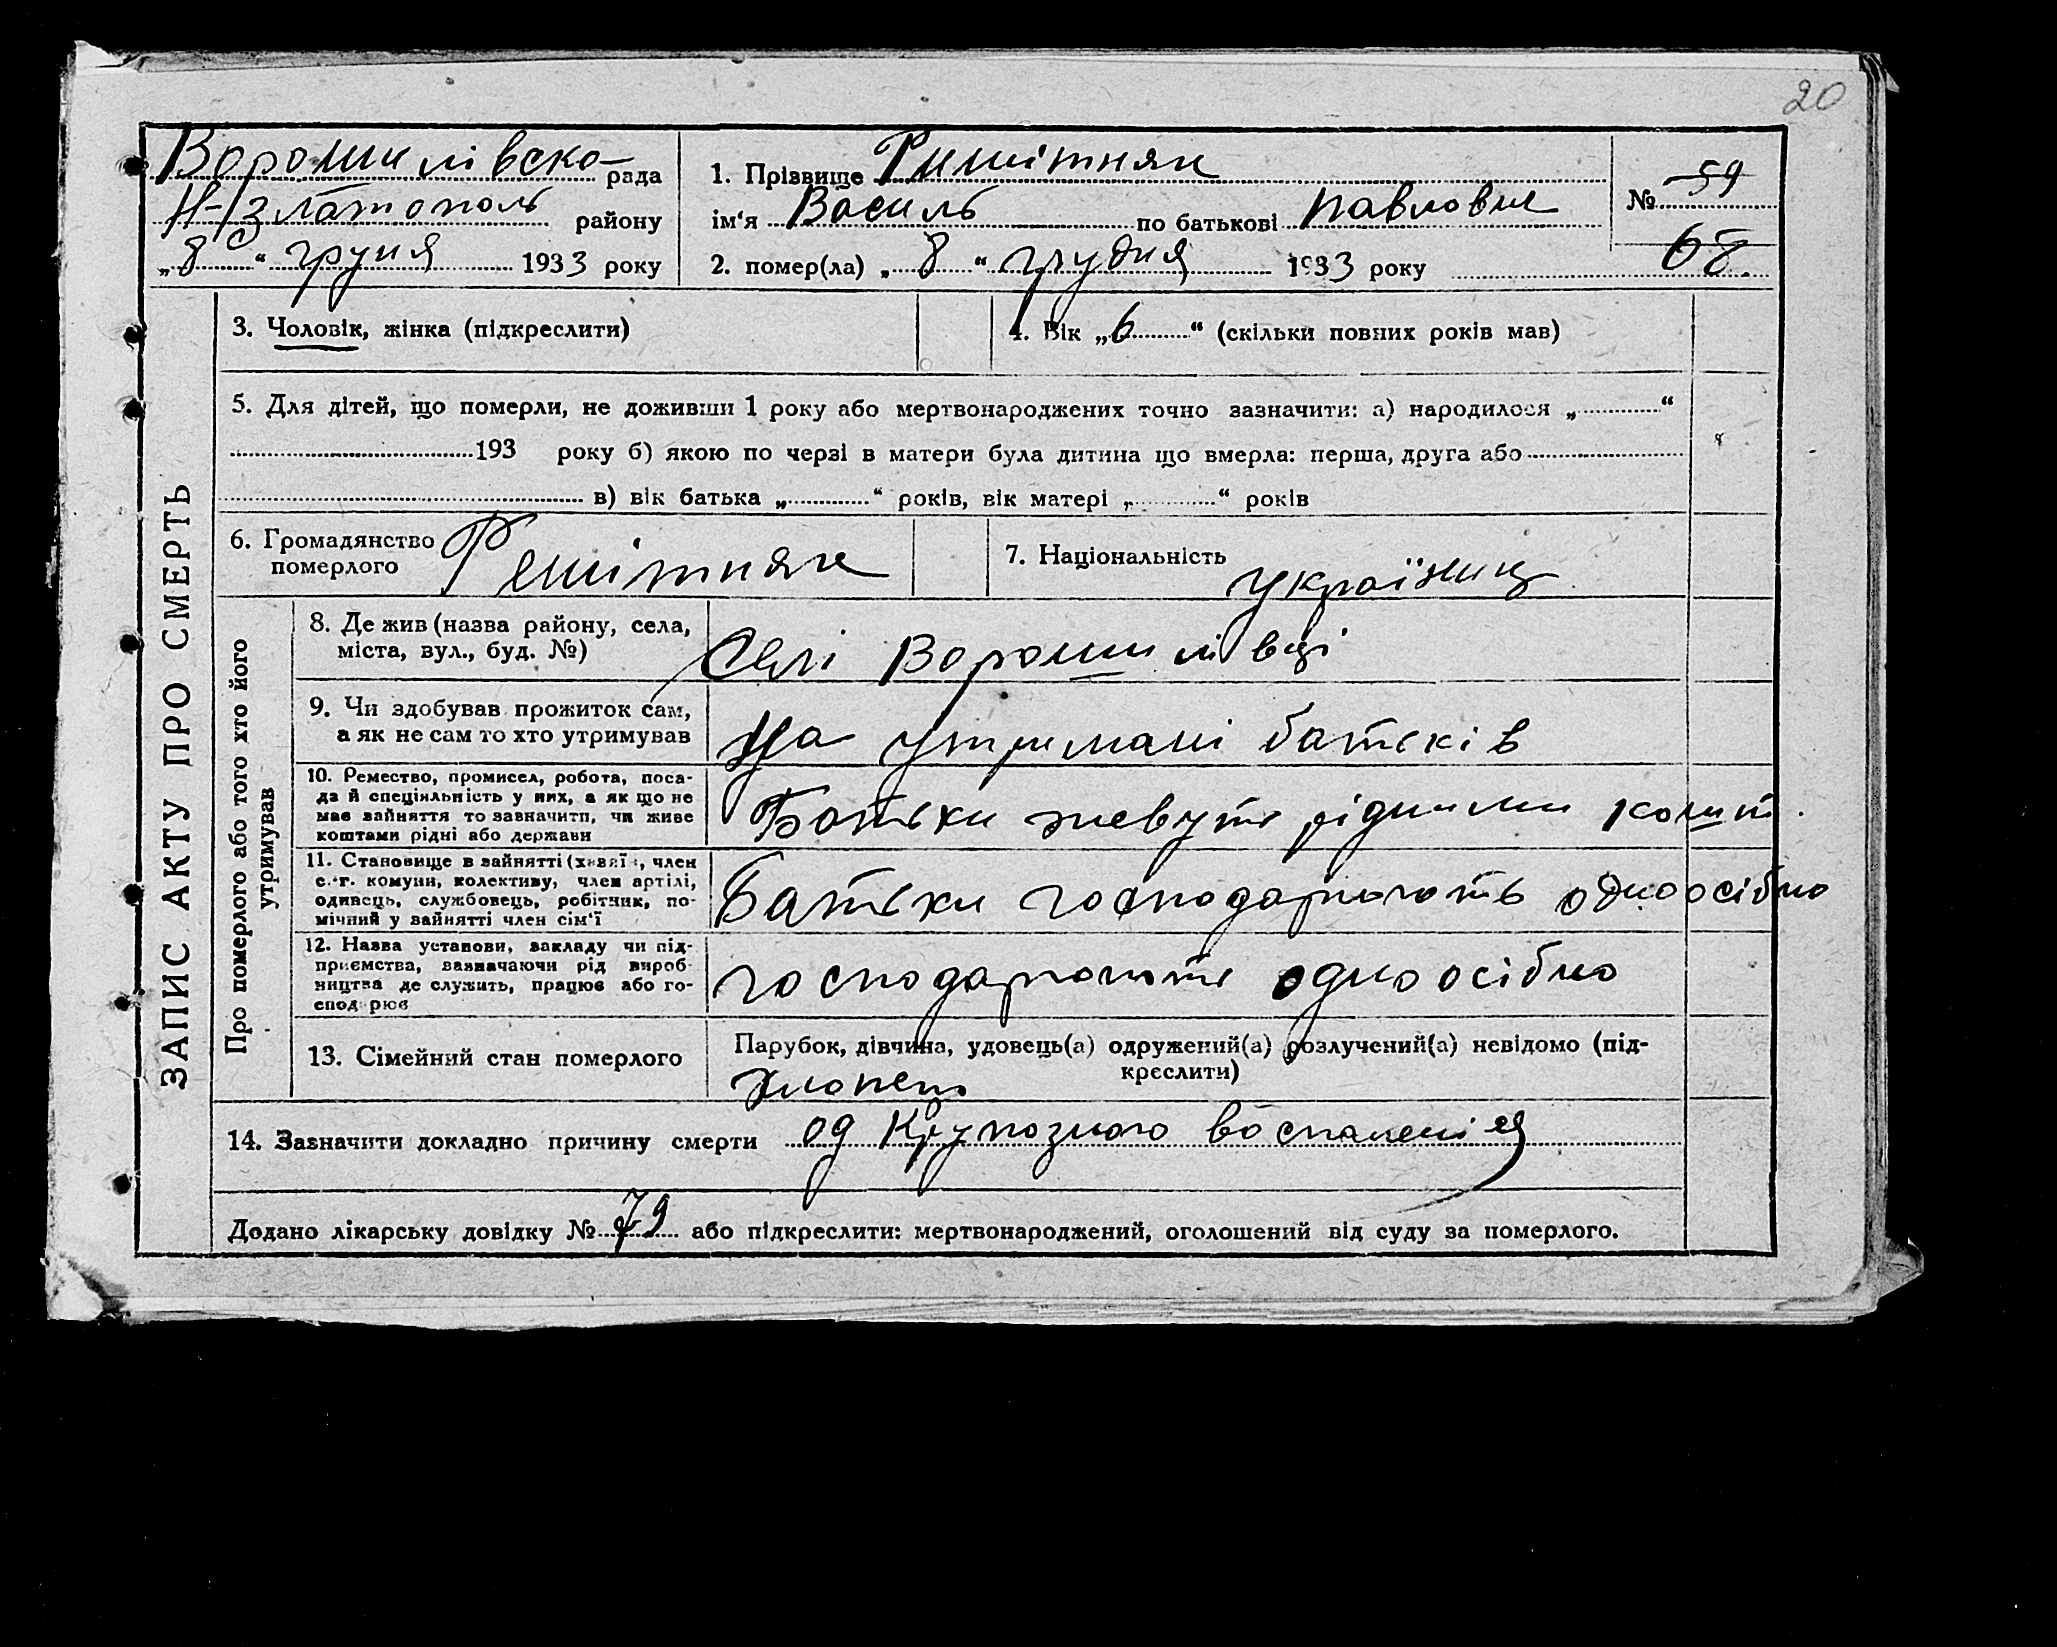 20
Ворошилівска рада
Н-Златополь району
„8“ груня 1933 року
1. Прізвище Ришітняк
ім‘я Василь по батькові Павлович
№ 59
68.
2. помер(ла) „8“ грудня 1933 року
ЗАПИС АКТУ ПРО СМЕРТЬ
3. Чоловік, жінка (підкреслити)
4. Вік „6“ (скільки повних років мав)
5. Для дітей, що померли, не доживши 1 року або мертвонароджених точно зазначити: а) народилося „ “
193 року б) якою по черзі в матери була дитина що вмерла: перша, друга або
в) вік батька „ “ років, вік матері „ “ років
6. Громадянство
померлого
Решітняк
7. Національність
україниц
Про померлого або того хто його
утримував
8. Де жив (назва району, села,
міста, вул., буд. №)
Селі Ворошилівці
9. Чи здобував прожиток сам,
а як не сам то хто утримував
На утримані батьків
10. Ремество, промисел, робота, поса-
да й спеціяльність у них, а як що не
має зайняття то зазначити, чи живе
коштами рідні або держави
Батьки живуть рідними кошт.
11. Становище в зайнятті (хазяїн, член
с.-г. комуни, колективу, член артілі,
одинець, службовець, робітник, по-
мічний у зайнятті член сім‘ї
Батьки господарюють одноосібно
12. Назва установи, закладу чи під-
приємства, зазначаючи рід вироб-
ництва де служить, працює або го-
сподарює
господарюють одноосібно
13. Сімейний стан померлого
Парубок, дівчина, удовець(а) одружений(а) розлучений(а) невідомо (під-
креслити)
Хлопець
14. Зазначити докладно причину смерти од Крупозного воспаленія
Додано лікарську довідку № 79 або підкреслити: мертвонароджений, оголошений від суду за померлого.